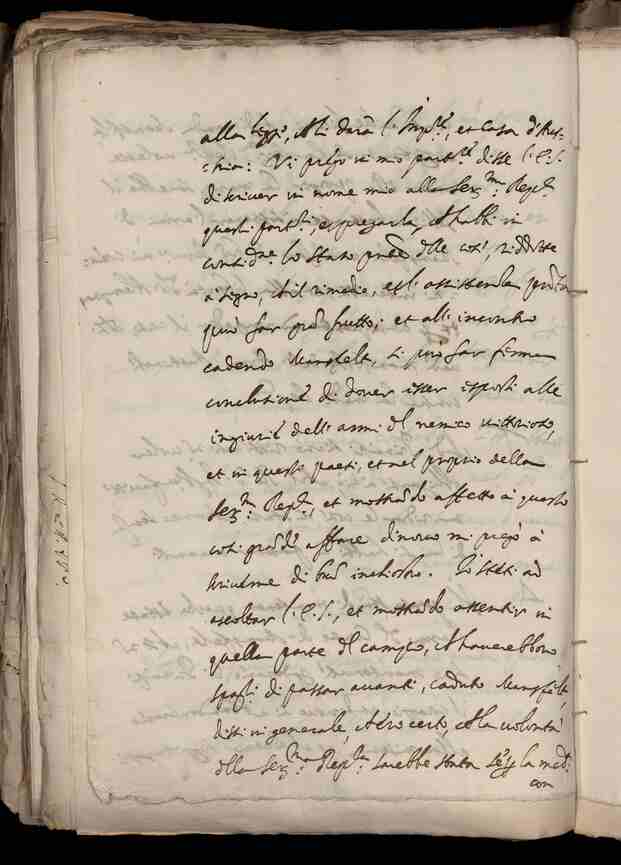 alla legge, che li darà l'Imp.re, et Casa d'Aus-
-tria: Vi prego in mio part.re disse l'E.S.
di scriver in nome mio alla Ser.ma Rep.ca
questi part.ri, et pregarla, che habbi in
consid.ne lo stato pnte delle cose, ridotte
à segno, che il rimedio, et l'assistenza
può far grā frutto; et all'incontro
cadendo Mansfelt, si può far ferma
conclusione di dover esser esposti alle
ingiurie dell'armi del nemico vittorioso,
et in questi paesi, et nel proprio della
Ser.ma Rep.ca, et mostrādo affetto à questo
così grāde affare di nuovo mi pregò à
scriverne di buō inchiostro. Io stetti ad
ascoltar l'E.S., et mostrādo attentione in
quella parte del campo, che haverebbono
spagli di passar avanti, caduto Mansfelt,
dissi in generale, che ero certo, che la volontà
della Ser.ma Rep.ca sarebbe stata sēpre la med.a
con